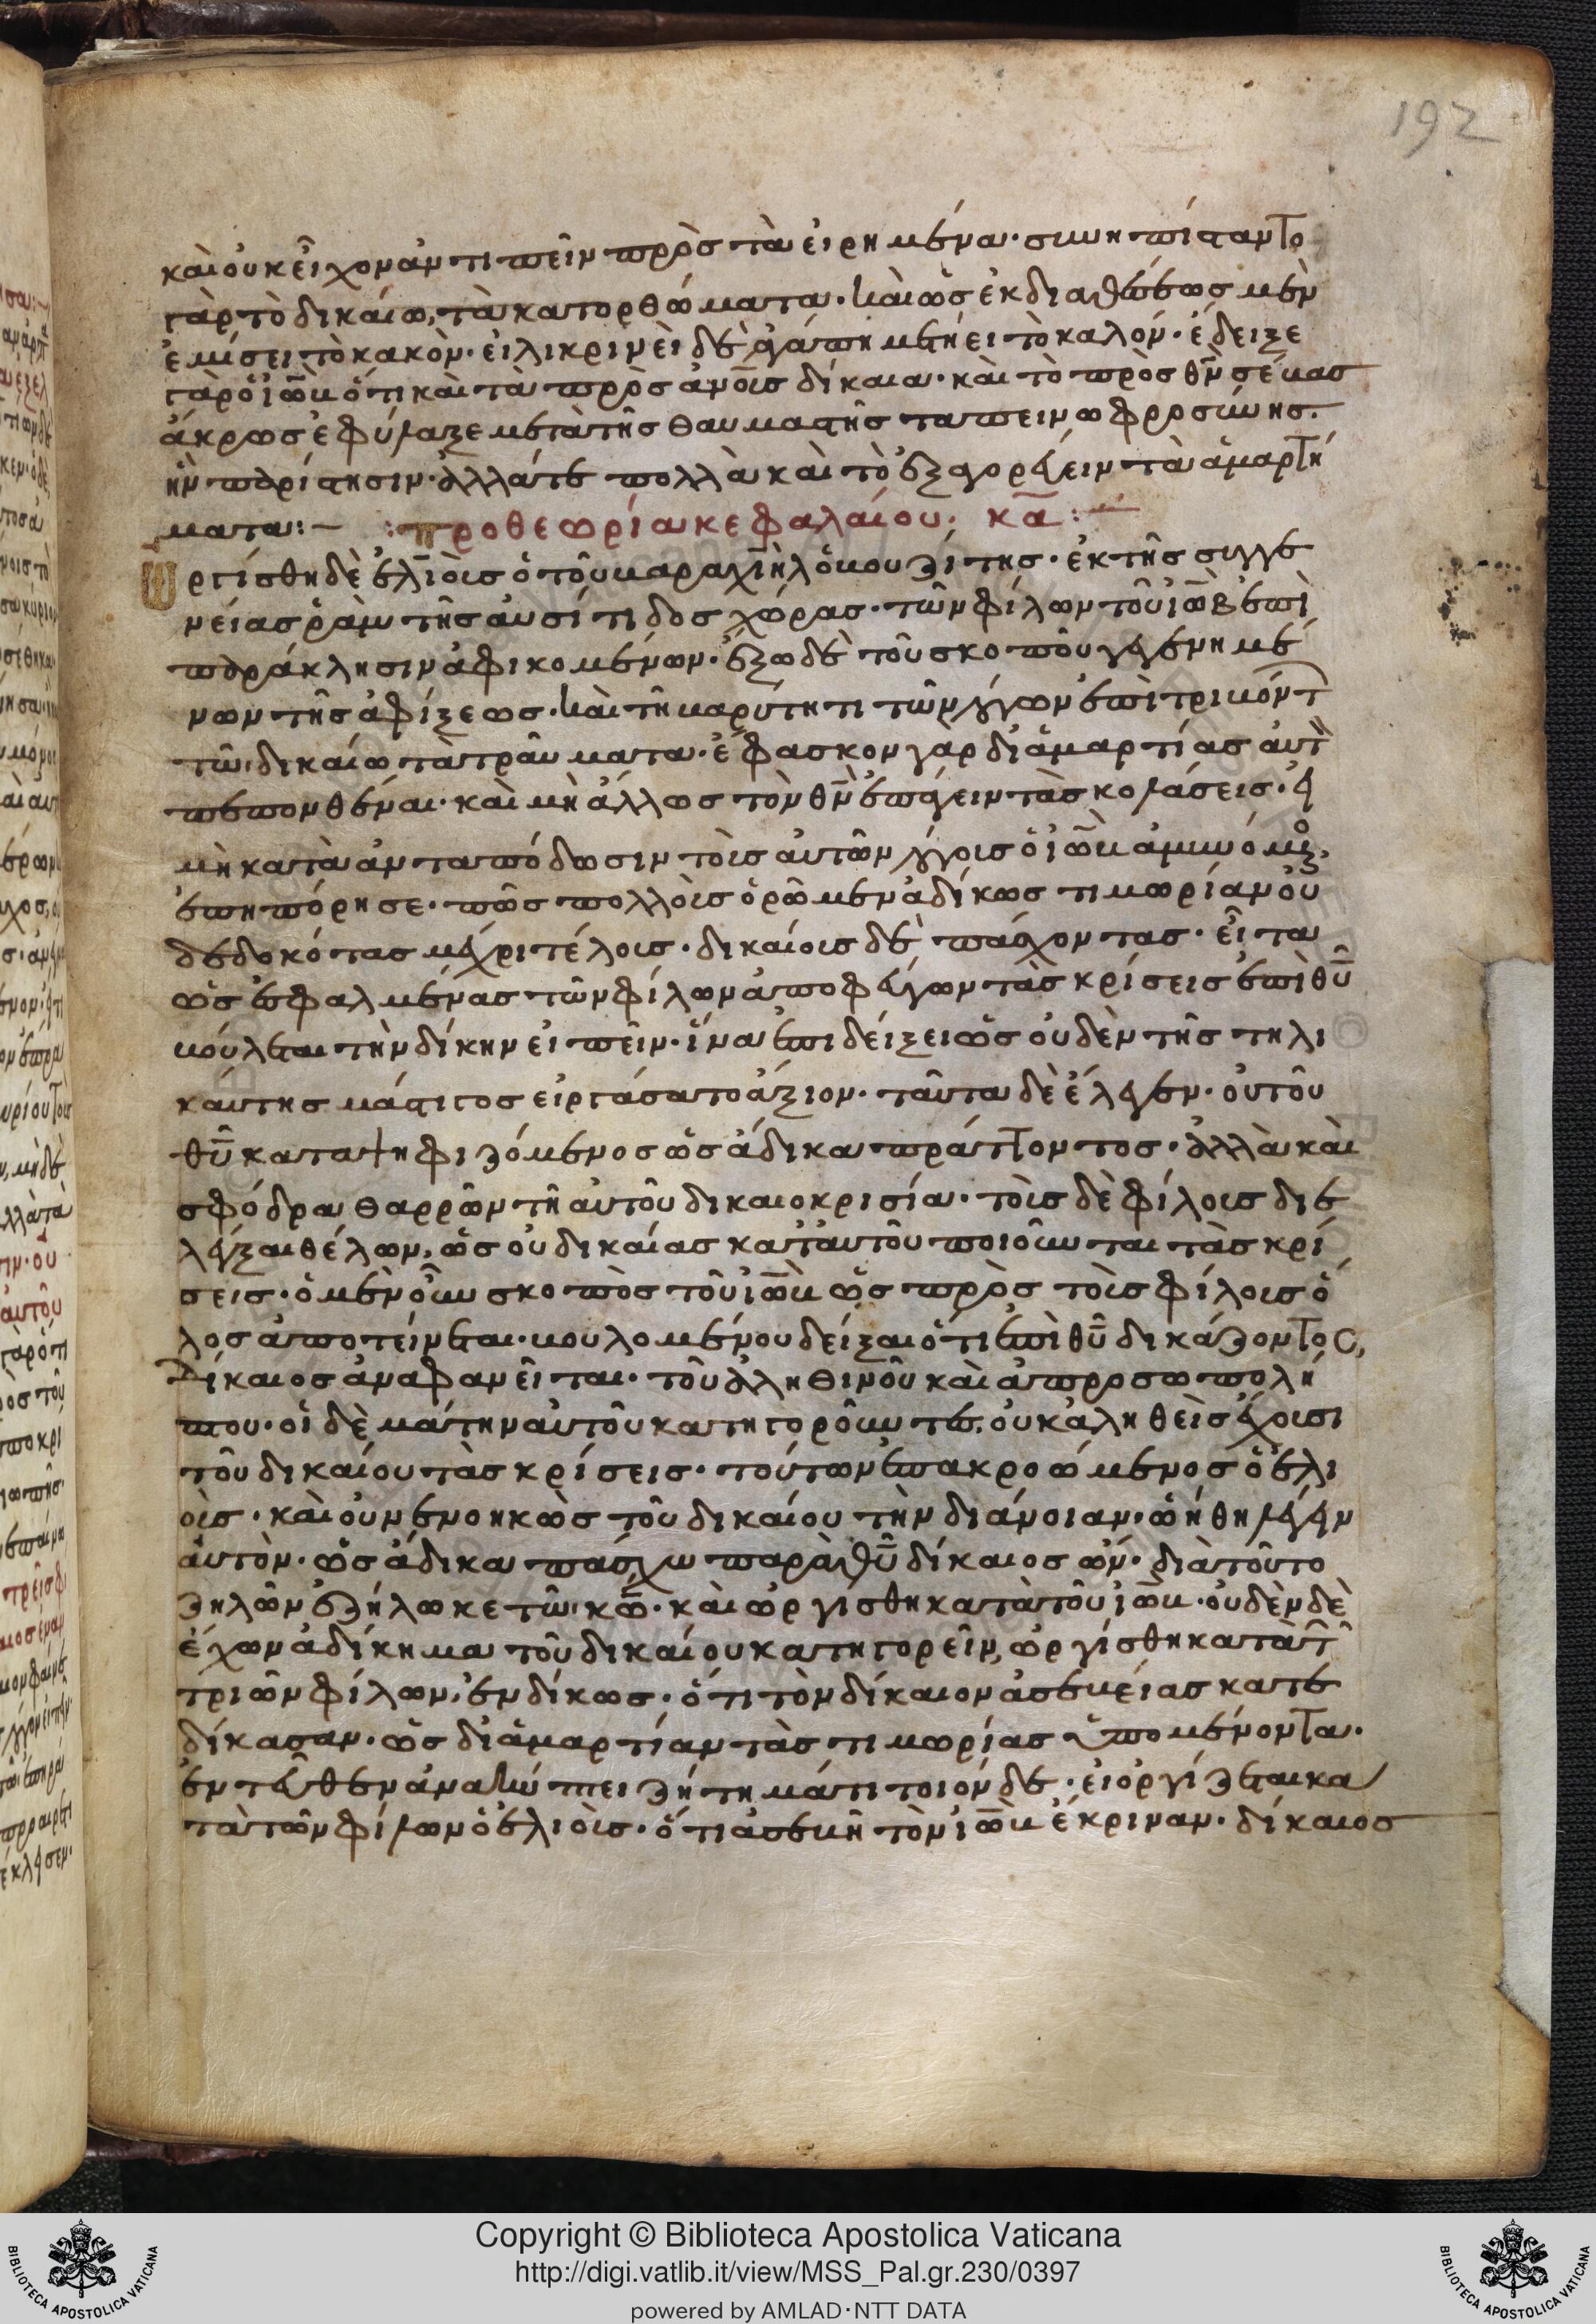 192
καὶ οὐκ εἶχον ἀντιπεῖν πρὸς τὰ εἰρημένα· συνηπίσταντο
γὰρ τὸ δικαίω, τὰ κατορθώματα· καὶ ὡς ἐκ διαθέσεως μὲν
ἐμίσει τὸ κακὸν· εἰλικρινεῖ δὲ ἀγάπη μετήει τὸ καλόν· ἔδειξε
γὰρ ὁ ἰὼβ ὅτι καὶ τὰ πρὸς ἀνοις δίκαια· καὶ τὸ πρὸς θν σέβας
ἄκρως ἐφύλαξε μετὰ τῆς θαυμαστῆς ταπεινωφροσύνης·
ἣν παρίστησιν· ἄλλά τε πολλὰ καὶ τὸ ἐξαγορεύειν τὰ ἁμαρτή
ματα:– :προθεωρία κεφαλαίου· κα:–
Ὠργίσθη δὲ ἐλιοῖς ὁ τοῦ βαραχιὴλ ὁ βουζίτης· ἐκ τῆς συγγε
νείας ῥὰμ τῆς αὐσίτιδος χώρας· τῶν φίλων τοῦ ἰὼβ ἐπὶ
παράκλησιν ἀφικομένων· ἔξω δὲ τοῦ σκοποῦ γεγενημέ
νων τῆς ἀφίξεως· καὶ τῆ βαρύτητι τῶν λόγων ἐπιτριβόντ
τῶ δικαίω τὰ τραύματα· ἔφασκον γὰρ δι' ἁμαρτίας αὐτὸ
πεπονθέναι· καὶ μὴ ἄλλως τὸν θν ἐπάγειν τὰς κολάσεις· εἰ
μὴ κατὰ ἀνταπόδωσιν τοῖς αὐτῶν λόγοις ὁ ἰὼβ ἀμυνόμε
ἐπηπόρησε· πῶς πολλοῖς ὁρῶμεν ἀδίκως τιμωρίαν οὐ
δεδοκότας μέχρι τέλοις· δικαίοις δὲ πάσχοντας· εἶτα
ὡς ἐσφαλμένας τῶν φίλων ἀποφεύγων τὰς κρίσεις ἐπὶ θυ
βούλεται τὴν δίκην εἰπεῖν· ἵνα ἐπιδείξει ὡς οὐδὲν τῆς τηλι
καύτης μάστιγος εἰργάσατο ἄξιον· ταῦτα δὲ ἔλεγεν· οὐ τοῦ
θυ καταψηφιζόμενος ὡς ἄδικα πράττοντος· ἀλλὰ καὶ
σφόδρα θαρρῶν τῆ αὐτοῦ δικαιοκρισία· τοῖς δὲ φίλοις διε
λέγξαι θέλων, ὡς οὐ δικαίας κατ' αὐτοῦ ποιοῦνται τὰς κρί
σεις· ὁ μὲν οὖν σκοπὸς τοῦ ἰὼβ ὡς πρὸς τοῖς φίλοις ὅ
λος ἀποτείνεται· βουλομένου δείξαι ὅτι ἐπὶ θυ δικάζοντος,
δίκαιος ἀναφανεῖται· τοῦ ἀληθινοῦ καὶ ἀπροσωπολή
πτου· οἱ δὲ μάτην αὐτοῦ κατηγοροῦντες, οὐκ ἀληθεῖς ἔχοισι
τοῦ δικαίου τὰς κρίσεις· τούτων ἐπακροώμενος ὁ ἐλι
οῖς· καὶ οὐ νενοηκὼς τοῦ δικαίου τὴν διάνοιαν· ὠήθη λέγειν
αὐτὸν· ὡς ἄδικα πάσχω παρὰ θυ δίκαιος ὤν· διὰ τοῦτο
ζηλῶν ἐζήλωκε τῶ κω· καὶ ὠργίσθη κατὰ τοῦ ἰὼβ· οὐδὲν δὲ
ἔχων ἀδίκημα τοῦ δικαίου κατηγορεῖν, ὠργίσθη κατὰ τ
τριῶν φίλων, ἐνδίκως· ὅτι τὸν δίκαιον ἀσεβείας κατε
δίκασαν· ὡς δι' ἁμαρτίαν τὰς τιμωρίας ὑπομένοντα·
ἐντεῦθεν ἀνακύπτει ζήτημά τι τοιόνδε· εἰ ὀργίζεται κα
τὰ τῶν φίλων ὁ ἐλιοῖς· ὅτι ἀσεβῆ τὸν ἰὼβ ἔκριναν· δίκαιος
Copyright © Biblioteca Apostolica Vaticana
http://digi.vatlib.it/view/MSS_Pal.gr.230/0397
powered by AMLAD·NTT DATA
BIBLIOTECA APOSTOLICA VATICANA
BIBLIOTECA APOSTOLICA VATICANA